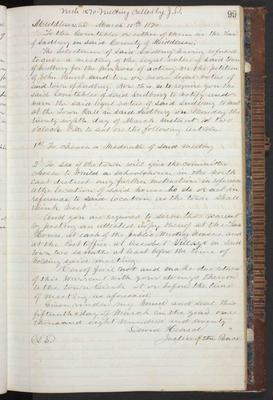 99
Mch 1870 Meeting Called by J.P.
Middlesex SS March 15th 1870
To the Constables or either of them in the Town
of Sudbury in said County of Middlesex.
The Selectmen of said Sudbury having refused
to call a meeting of the legal voters of said Town
of Sudbury for the purpose of acting on the petition
of John Hunt and ten or more legal voters of
said town of Sudbury. You
said Constables of said Sudbury to notify and
warn the said legal voters of said Sudbury to meet
at the Town Hall in said Sudbury on Monday the
twenty eighth day of March instant at two
oclock P.M. to act on the following articles
1st To choose a Moderator of said meeting
2 To see if the town will give the committee
chosen to build a schoolhouse in the North
East district any further instruction in
the location of said house or do or act in
reference to said location as the town shall
think best.
And you are required to serve this Warrant
by posting an attested copy thereof at the Town
House, at each of the Public Meeting Houses and
at the Post Office at Assabet Village in said
town two sabbaths at least before the time of
holding said meeting.
Hereof fail not and make due return
of this Warrant with your doings thereon
to the town Clerk at or before the time
of meeting as aforesaid.
Given under my hand and seal this
fifteenth day of March in the year one
thousand eight hundred and seventy
David Heard
(L.S.) Justice of the Peace